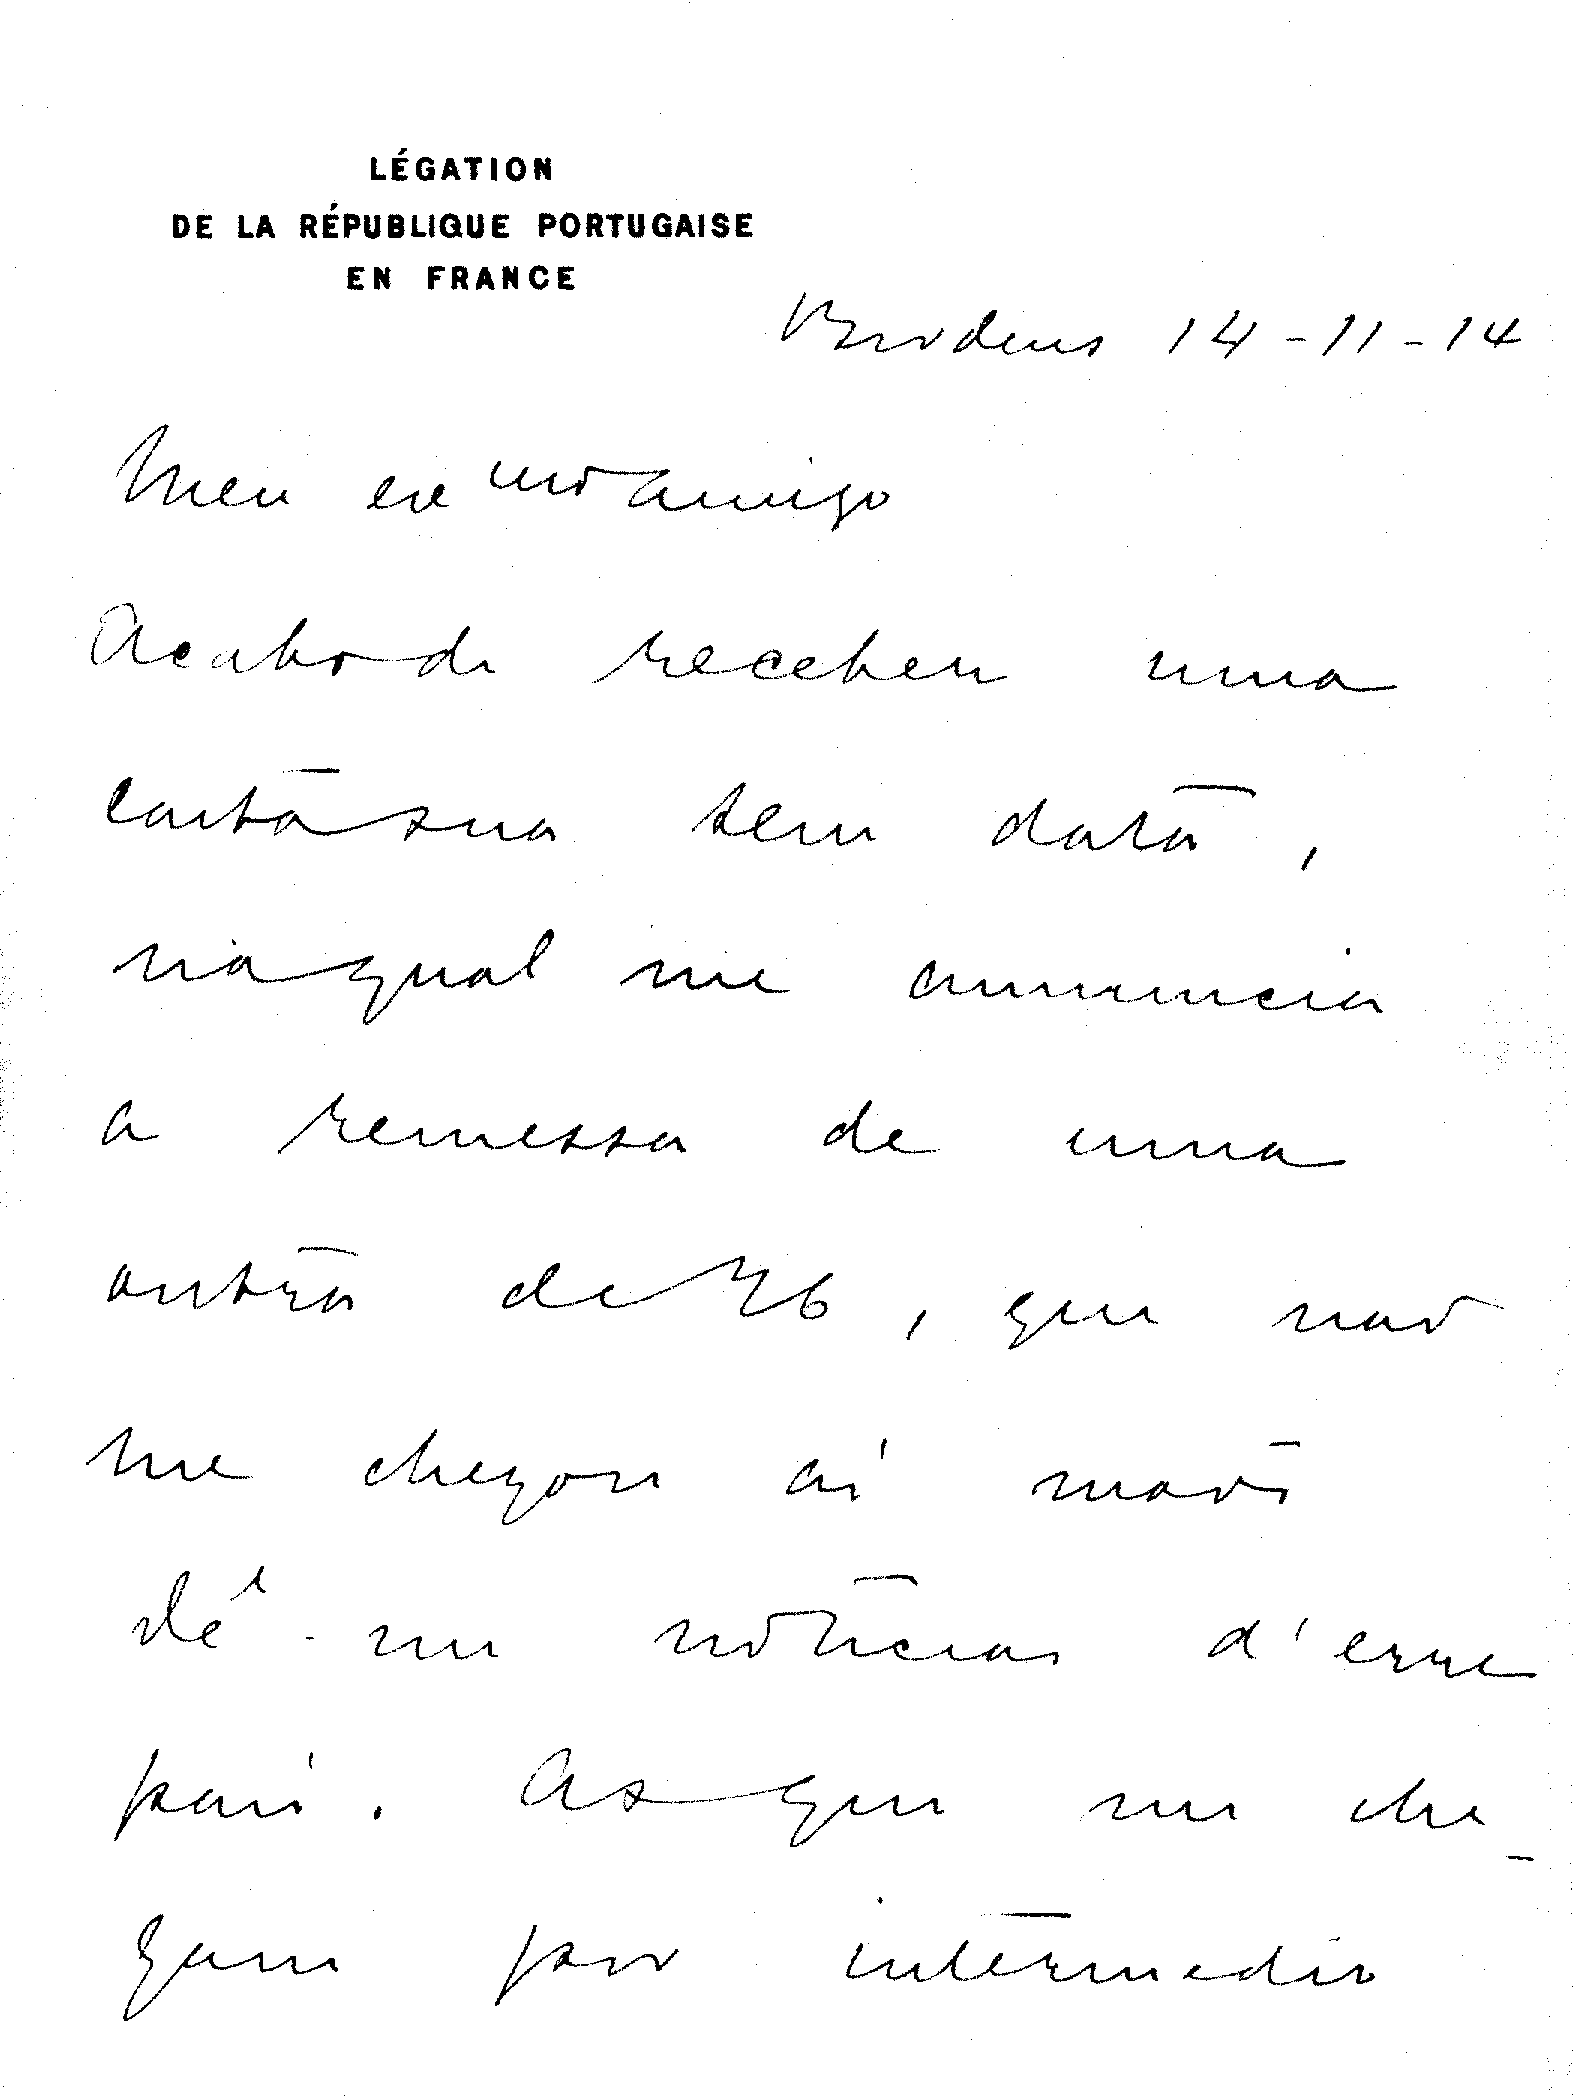 LÉGATION
DE LA RÉPUBLIQUE PORTUGAISE
EN FRANCE
Bordeus 14-11-14
Meu exmo amigo
Acabo de receber uma
carta sua sem data,
na qual me annuncia
a remessa de uma
outra de 26, que não
me chegou ás mãos
Dê-me noticias d'esse
pais. As que me che-
gam por intermedio